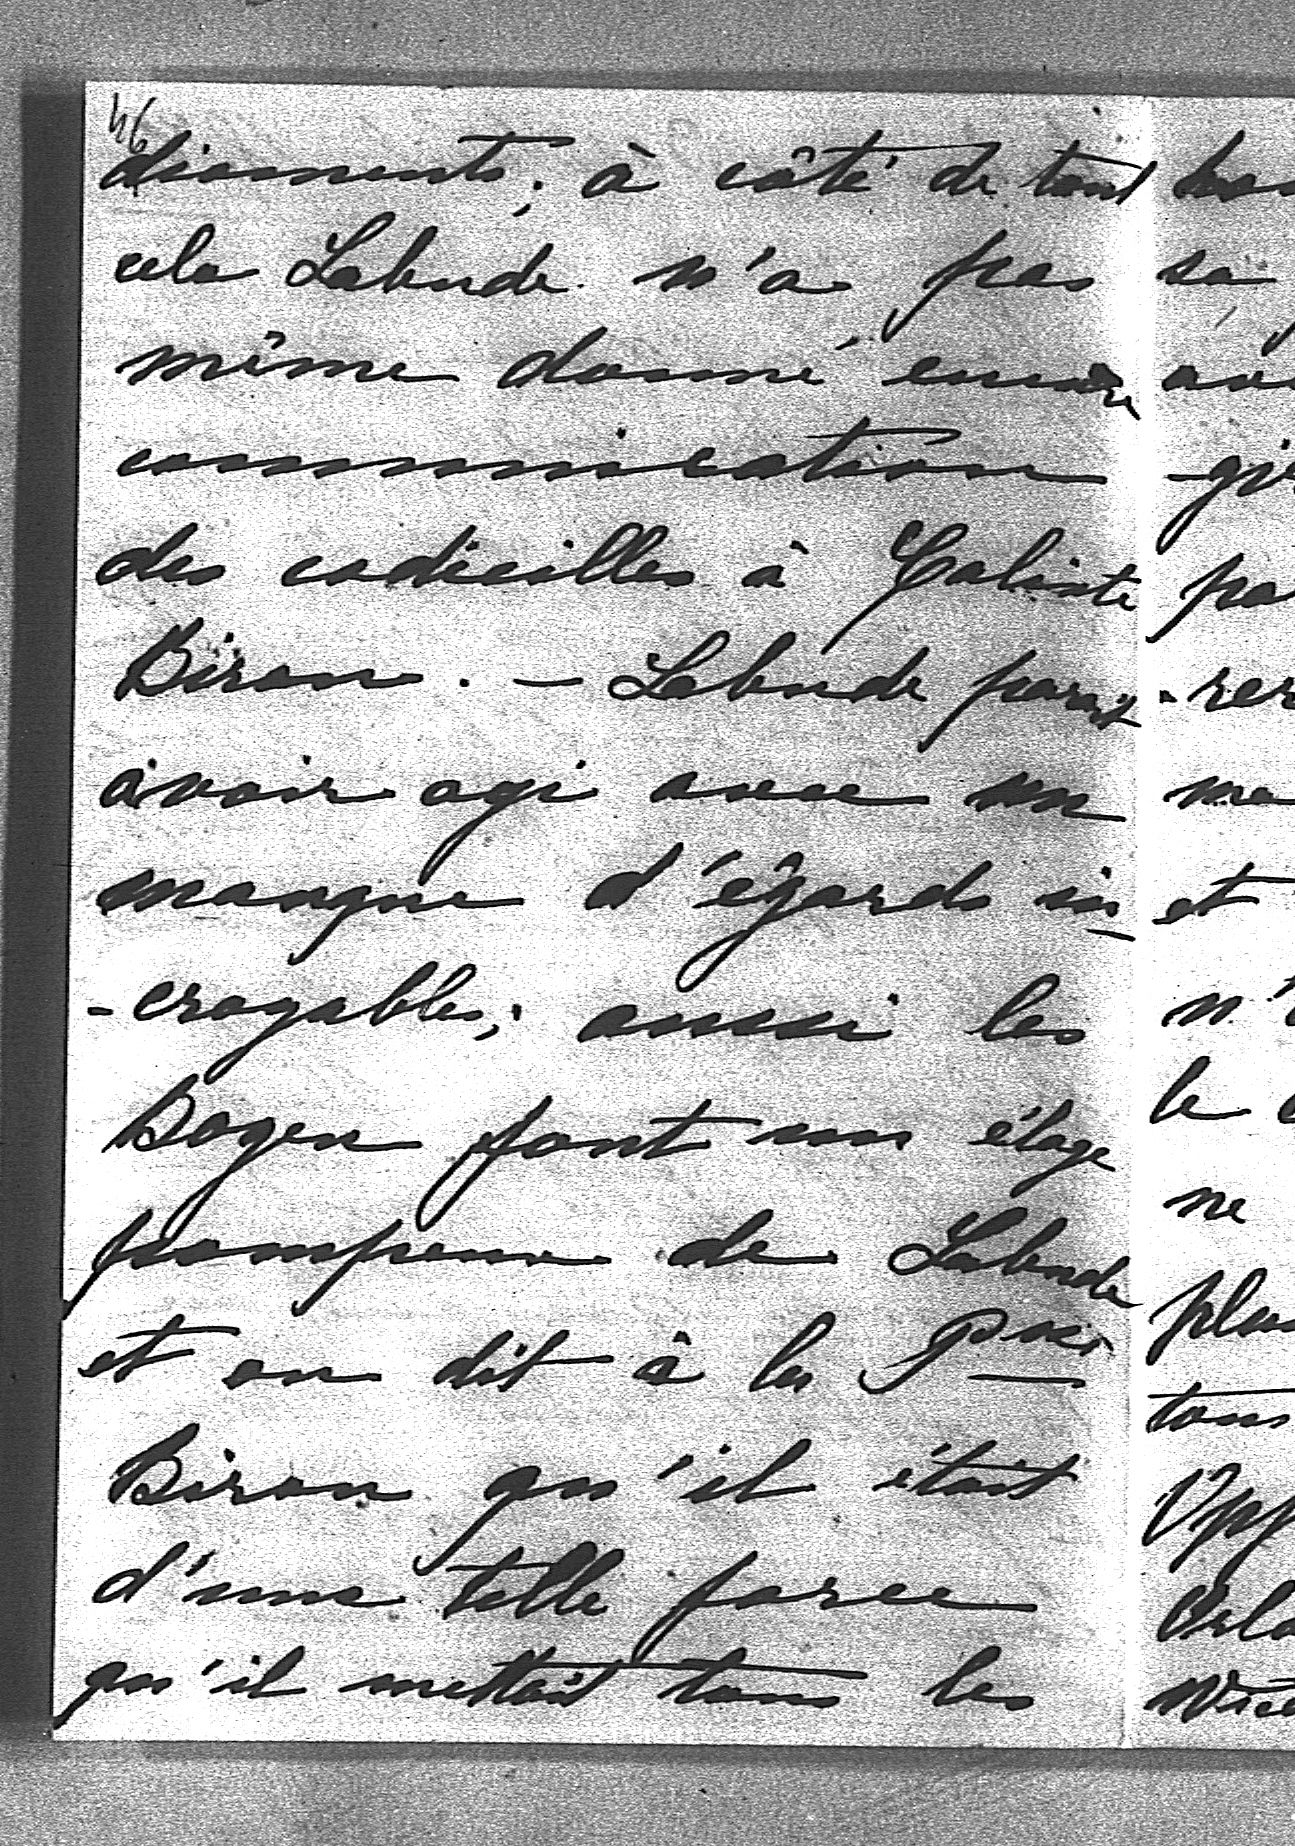 46
diaments; à côté de tout
cela Labude n'a pas
même donné encore
communication
des codicilles à Calixte
Biron. – Labude parait
avoir agi avec un
manque d'égards in
-croyables; aussi les
Bogen font un éloge
pompeux de Labude
et on dit à la Pce
Biron qu'il était
d'une telle force
qu'il mettait tous les